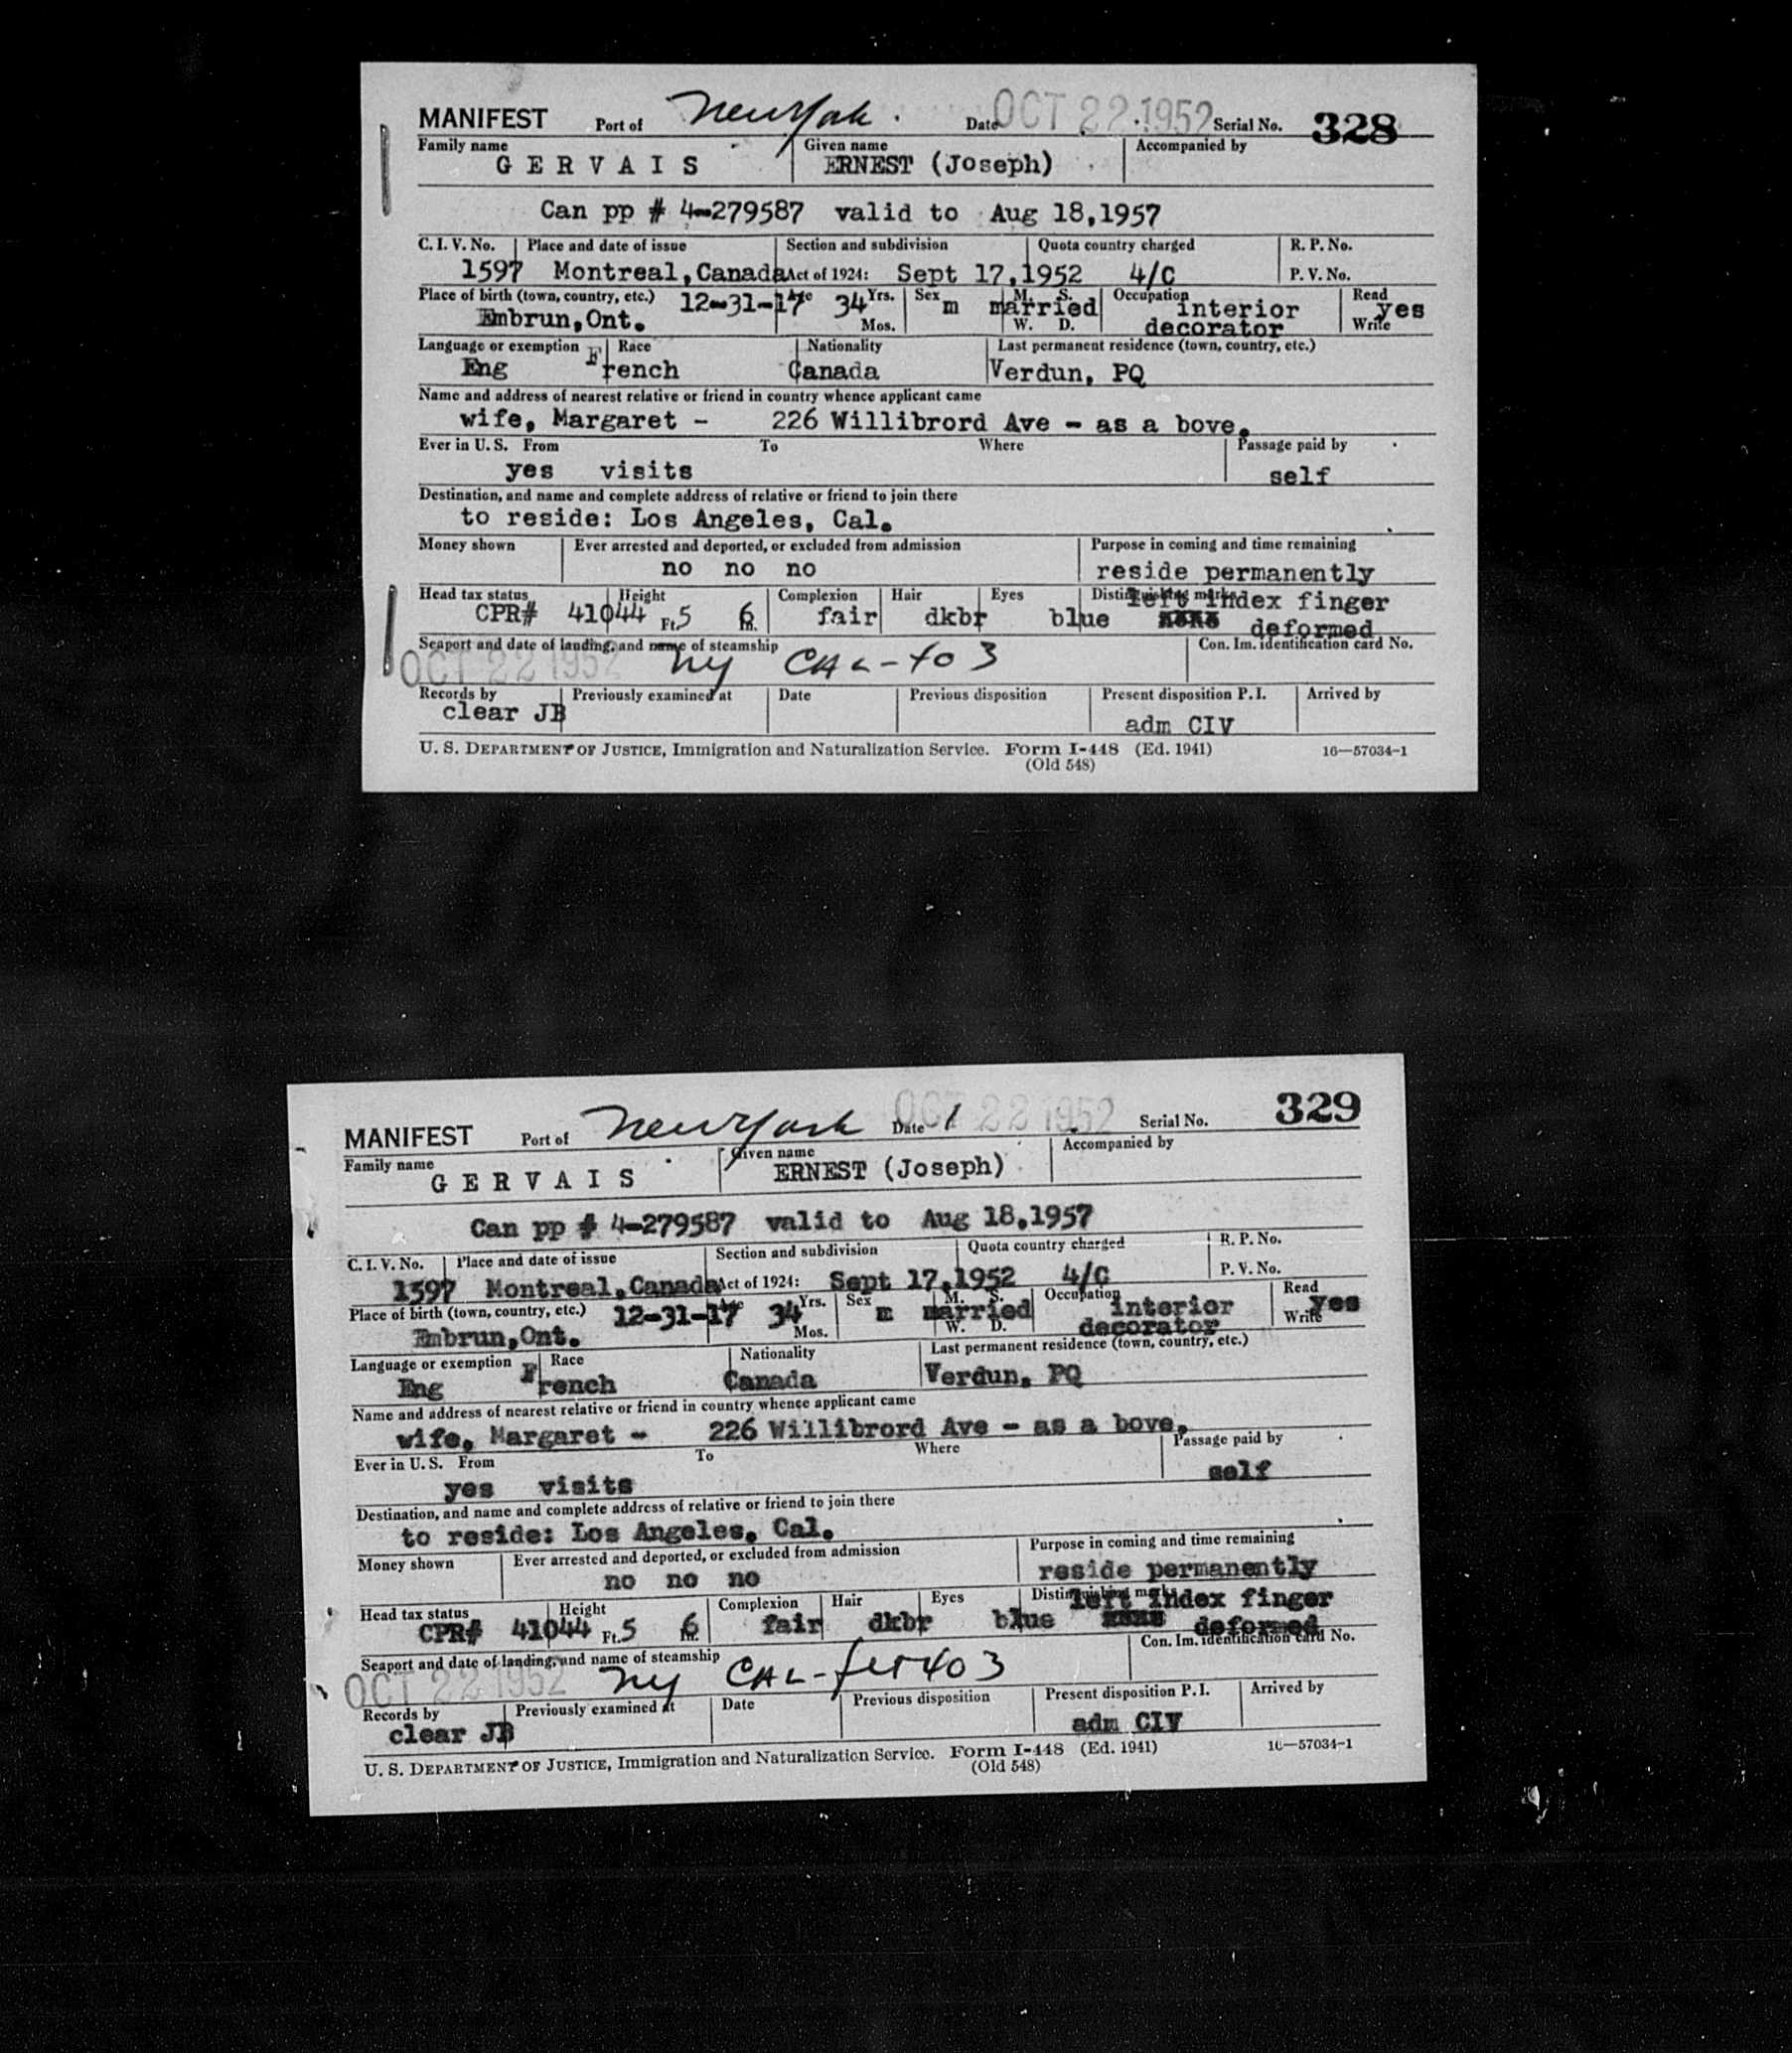 MANIFEST Port of New York Date OCT 22 1952 Serial No. 328
Family name Given name Accompanied by
GERVAIS ERNEST (Joseph)
Can pp # 4-279587 valid to Aug 18,1957
C. I. V. No. Place and date of issue Section and subdivision Quota country charged R. P. No.
1597 Montreal,Canada Act of 1924: Sept 17,1952 4/C P. V. No.
Place of birth (town, country, etc.) 12-31-17 Age 34 Yrs. Sex m M. S. Occupation interior Read yes
Embrun,Ont. Mos. married W. D. decorator Write
Language or exemption Race Nationality Last permanent residence (town, country, etc.)
Eng French Canada Verdun, PQ
Name and address of nearest relative or friend in country whence applicant came
wife, Margaret - 226 Willibrord Ave - as a bove.
Ever in U. S. From To Where Passage paid by
yes visits self
Destination, and name and complete address of relative or friend to join there
to reside: Los Angeles, Cal.
Money shown Ever arrested and deported, or excluded from admission Purpose in coming and time remaining
no no no reside permanently
Head tax status Height Complexion Hair Eyes Distinguishing marks left index finger
CPR# 41044 Ft. 5 6 In. fair dkbr blue deformed
Seaport and date of landing, and name of steamship Con. Im. identification card No.
OCT 22 1952 ny CAL-403
Records by Previously examined at Date Previous disposition Present disposition P. I. Arrived by
clear JB adm CIV
U. S. DEPARTMENT OF JUSTICE, Immigration and Naturalization Service. Form I-448 (Ed. 1941) 16—57034-1
(Old 548)
MANIFEST Port of New York Date OCT 22 1952 Serial No. 329
Family name Given name Accompanied by
GERVAIS ERNEST (Joseph)
Can pp # 4-279587 valid to Aug 18,1957
C. I. V. No. Place and date of issue Section and subdivision Quota country charged R. P. No.
1597 Montreal,Canada Act of 1924: Sept 17,1952 4/C P. V. No.
Place of birth (town, country, etc.) 12-31-17 Age 34 Yrs. Sex m M. S. Occupation interior Read yes
Embrun,Ont. Mos. married W. D. decorator Write
Language or exemption Race Nationality Last permanent residence (town, country, etc.)
Eng French Canada Verdun, PQ
Name and address of nearest relative or friend in country whence applicant came
wife, Margaret - 226 Willibrord Ave - as a bove.
Ever in U. S. From To Where Passage paid by
yes visits self
Destination, and name and complete address of relative or friend to join there
to reside: Los Angeles, Cal.
Money shown Ever arrested and deported, or excluded from admission Purpose in coming and time remaining
no no no reside permanently
Head tax status Height Complexion Hair Eyes Distinguishing marks left index finger
CPR# 41044 Ft. 5 6 In. fair dkbr blue deformed
Seaport and date of landing, and name of steamship Con. Im. identification card No.
OCT 22 1952 ny CAL-
Records by Previously examined at Date Previous disposition Present disposition P. I. Arrived by
clear JB adm CIV
U. S. DEPARTMENT OF JUSTICE, Immigration and Naturalization Service. Form I-448 (Ed. 1941) 16—57034-1
(Old 548)